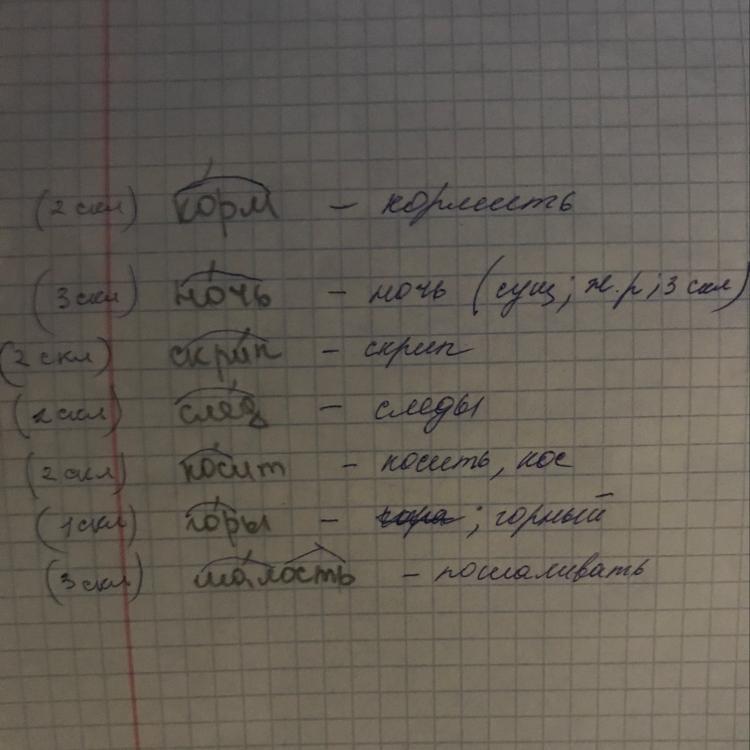 (2 скл) корм – кормить
(3 скл) ночь – ночь (сущ; ж.р; 3 скл)
(2 скл) скрип – скрип
(2 скл) след – следы
(2 скл) косит – косить, кос
(1 скл) горы – гора; горный
(3 скл) шалость – пошаливать